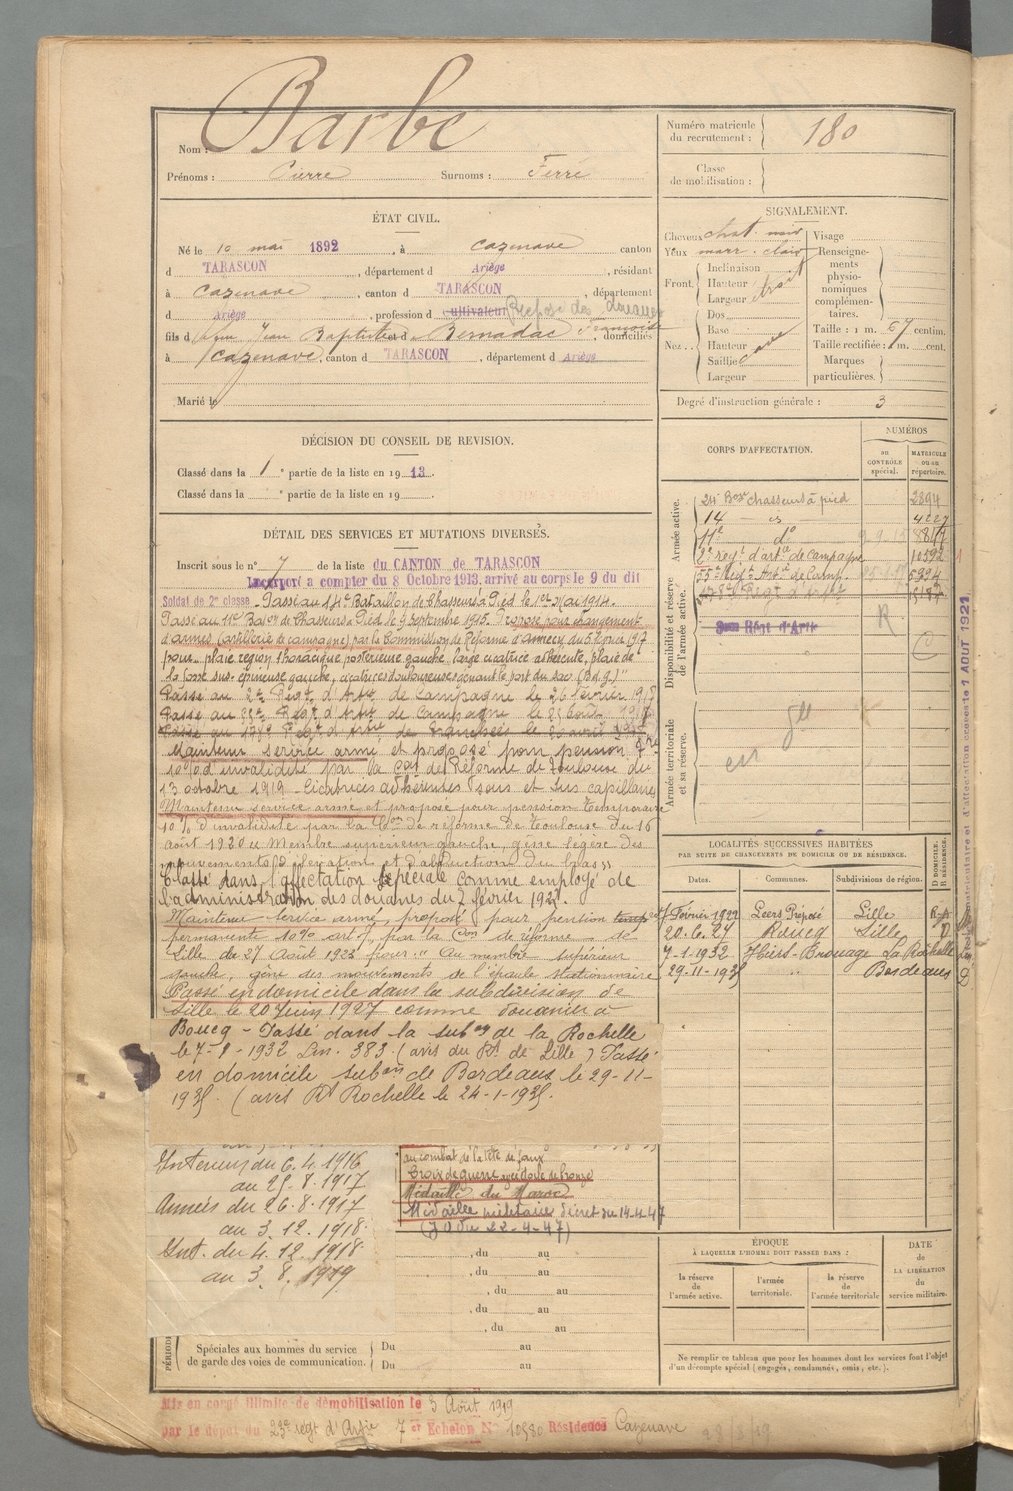 Nom : Barbe
Prénoms : Pierre Surnoms : Ferré
Numéro matricule du recrutement : 180
Classe de mobilisation :
ÉTAT CIVIL.
Né le 10 mai 1892, à Cazenave canton
d TARASCON, département d Ariège, résidant
à Cazenave, canton d TARASCON, département
d Ariège, profession d Cultivateur Préposé des douanes
fils d feu Jean Baptiste et d Bernadac Françoise, domiciliés
à Cazenave, canton d TARASCON, département d Ariège
Marié le
SIGNALEMENT.
Cheveux chat. noir Visage
Yeux marr. clair Renseignements physionomiques complémentaires.
Front. Inclinaison
Hauteur droit
Largeur
Nez. Dos
Base
Hauteur
Saillie cave
Largeur
Taille : 1 m. 67 centim.
Taille rectifiée : 1 m. cent.
Marques particulières.
Degré d'instruction générale : 3
DÉCISION DU CONSEIL DE REVISION.
Classé dans la 1e partie de la liste en 1913.
Classé dans la e partie de la liste en 19
CORPS D'AFFECTATION.
NUMÉROS
au CONTRÔLE spécial.
MATRICULE ou au répertoire.
Armée active.
24e Bon chasseurs à pied 2894
14 — is — 4227
11e do
2e régt d'artie de campagne 10592
55e Régt Artie de Camp.
Disponibilité et réserve de l'armée active.
R
C
Armée territoriale et sa réserve.
DÉTAIL DES SERVICES ET MUTATIONS DIVERSES.
Inscrit sous le no 7 de la liste du CANTON de TARASCON
Incorporé à compter du 8 Octobre 1913. arrivé au corps le 9 du dit
Soldat de 2e classe. Passé au 14e Bataillon de Chasseurs à Pied le 1er Mai 1914.
Passé au 11e Baton de Chasseurs à Pied le 9 Septembre 1915. Proposé pour changement
d'armes (artillerie de campagne) par la Commission de Réforme d'Annecy du 5
pour plaie région thoracique postérieure gauche, large cicatrice adhérente, plaie de
la fosse sus-épineuse gauche, cicatrices douloureuses gênant le port du sac.
Passé au 2e Régt d'Artie de Campagne le 26 février 1917
Passé au 55e Régt d'Artie de Campagne le 25 Août 1917
Passé au 178e Régt d'Artie de tranchées le
Maintenu service armé et proposé pour pension
10% d'invalidité par la Con de Réforme de Toulouse du
13 octobre 1919 - Cicatrices adhérentes sous et sus capillaires
Maintenu service armé et proposé pour pension temporaire
10% d'invalidité par la Con de réforme de Toulouse du 16
août 1920 Membre supérieur gauche, gêne légère des
mouvements d'élévation et d'abduction du bras
Classé dans l'affectation spéciale comme employé de
l'administration des douanes du 2 février 192
Maintenu service armé, proposé pour pension
permanente 10% par la Con de réforme de
Lille du 27 Août 1923 pour " Au membre supérieur
gauche, gêne des mouvements de l'épaule stationnaire
Passé en domicile dans la subdivision de
Lille le 20 Juin 1927 comme douanier à
Boucq - Passé dans la subon de la Rochelle
le 7-1-1932 Lm. 383 (avis du Rt de Lille) Passé
en domicile subon de Bordeaux le 29-11-
193. (avis Rt Rochelle le 24-1-193.
LOCALITÉS SUCCESSIVES HABITÉES
PAR SUITE DE CHANGEMENTS DE DOMICILE OU DE RÉSIDENCE.
Dates. Communes. Subdivisions de région. D DOMICILE. R RÉSIDENCE.
7 Février 1922 Leers Préposé Lille R
20.6.27 Roucq Lille D
7-1-1932 Hiers-Brouage La Rochelle
29-11-193 " Bordeaux D
Intérieur du 6.4.1916
au 25.8.1917
Armées du 26.8.1917
au 3.12.1918
Int. du 4.12.1918
au 3.8.1919
au combat de la tête de faux
Croix de guerre avec étoile de bronze
Médaille du Maroc
Médaille militaire décret du 14-4-47
(J.O du 22-4-47)
, du au
, du au
, du au
, du au
, du au
Spéciales aux hommes du service de garde des voies de communication.
Du au
Du au
ÉPOQUE
À LAQUELLE L'HOMME DOIT PASSER DANS :
la réserve de l'armée active.
l'armée territoriale.
la réserve de l'armée territoriale
DATE de LA LIBÉRATION du service militaire.
Ne remplir ce tableau que pour les hommes dont les services font l'objet d'un décompte spécial (engagés, condamnés, omis, etc.).
Mis en congé illimité de démobilisation le 3 Août 1919
par le dépôt du 23e régt d'Artie 7er Echelon No 10580 Résidence Cazenave 28/8/19